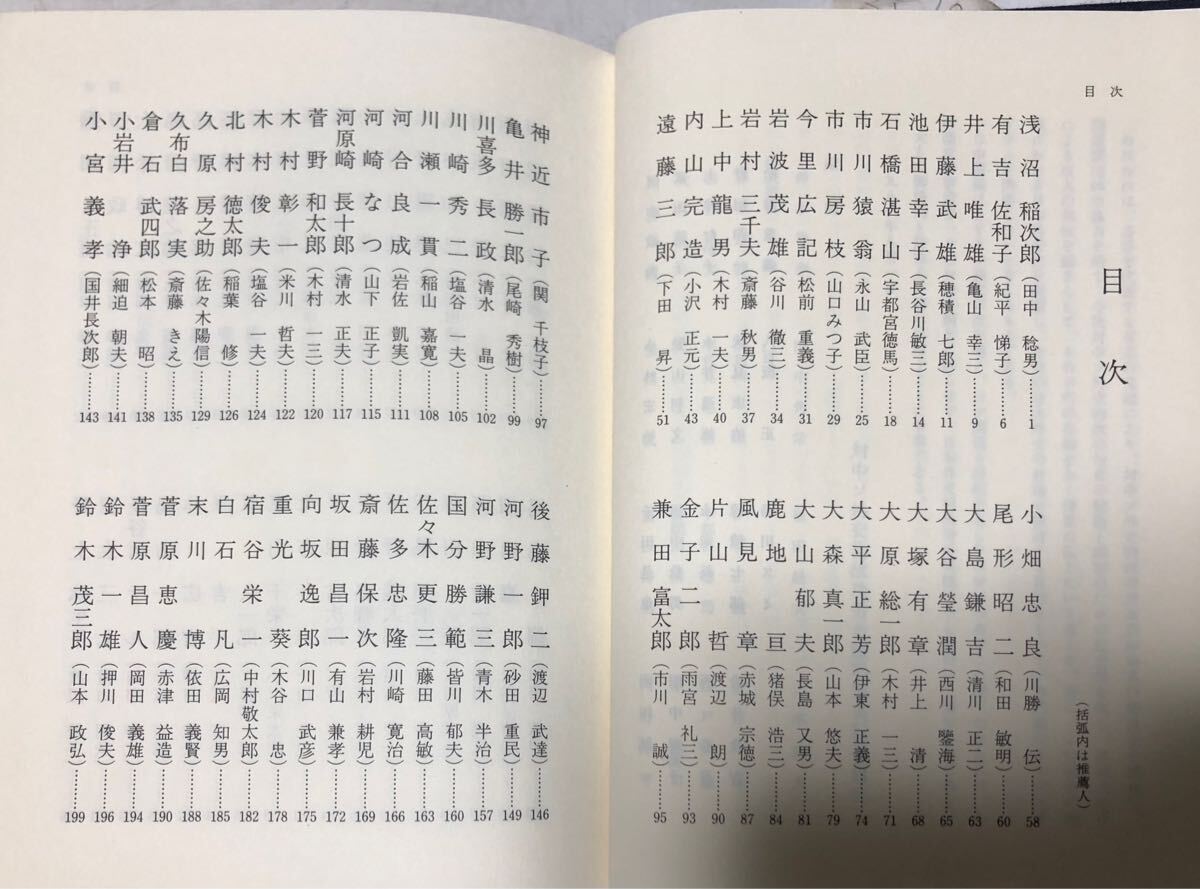 目次
目次
(括弧内は推薦人)
浅沼稲次郎(田中稔男)……1
有吉佐和子(紀平悌子)……6
井上唯雄(亀山幸三)……9
伊藤武雄(穂積七郎)……11
池田幸子(長谷川敏三)……14
石橋湛山(宇都宮徳馬)……18
市川猿翁(永山武臣)……25
市川房枝(山口みつ子)……29
今里広記(松前重義)……31
岩波茂雄(谷川徹三)……34
岩村三千夫(斎藤秋男)……37
上中龍男(木村一夫)……40
内山完造(小沢正元)……43
遠藤三郎(下田昇)……51
小畑忠良(川勝伝)……58
尾形昭二(和田敏明)……60
大島鎌吉(清川正二)……63
大谷瑩潤(西川鑒海)……65
大塚有章(井上清)……68
大原総一郎(木村一三)……71
大平正芳(伊東正義)……74
大森真一郎(山本悠夫)……79
大山郁夫(長島又男)……81
鹿地亘(猪俣浩三)……84
風見章(赤城宗徳)……87
片山哲(渡辺朗)……90
金子二郎(雨宮礼三)……93
兼田富太郎(市川誠)……95
神近市子(関千枝子)……97
亀井勝一郎(尾崎秀樹)……99
川喜多長政(清水晶)……102
川崎秀二(塩谷一夫)……105
川瀬一貫(稲山嘉寛)……108
河合良成(岩佐凱実)……111
河崎なつ(山下正子)……115
河原崎長十郎(清水正夫)……117
菅野和太郎(木村一三)……120
木村彰一(米川哲夫)……122
木村俊夫(塩谷一夫)……124
北村徳太郎(稲葉修)……126
久原房之助(佐々木陽信)……129
久布白落実(斎藤きえ)……135
倉石武四郎(松本昭)……138
小岩井浄(細迫朝夫)……141
小宮義孝(国井長次郎)……143
後藤鉀二(渡辺武達)……146
河野一郎(砂田重民)……149
河野謙三(青木半治)……157
国分勝範(皆川郁夫)……160
佐々木更三(藤田高敏)……163
佐多忠隆(川崎寛治)……166
斎藤保次(岩村耕児)……169
坂田昌一(有山兼孝)……172
向坂逸郎(川口武彦)……175
重光葵(木谷忠)……178
宿谷栄一(中村敬太郎)……182
白石凡(広岡知男)……185
末川博(依田義賢)……188
菅原恵慶(赤津益造)……190
菅原昌人(岡田義雄)……194
鈴木一雄(押川俊夫)……196
鈴木茂三郎(山本政弘)……199